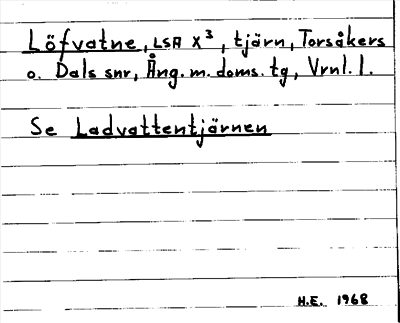 Löfvatne, LSA X³, tjärn, Torsåkers
o. Dals snr, Ång. m. doms. tg, Vrnl. l.
Se Ladvattentjärnen
H.E. 1968